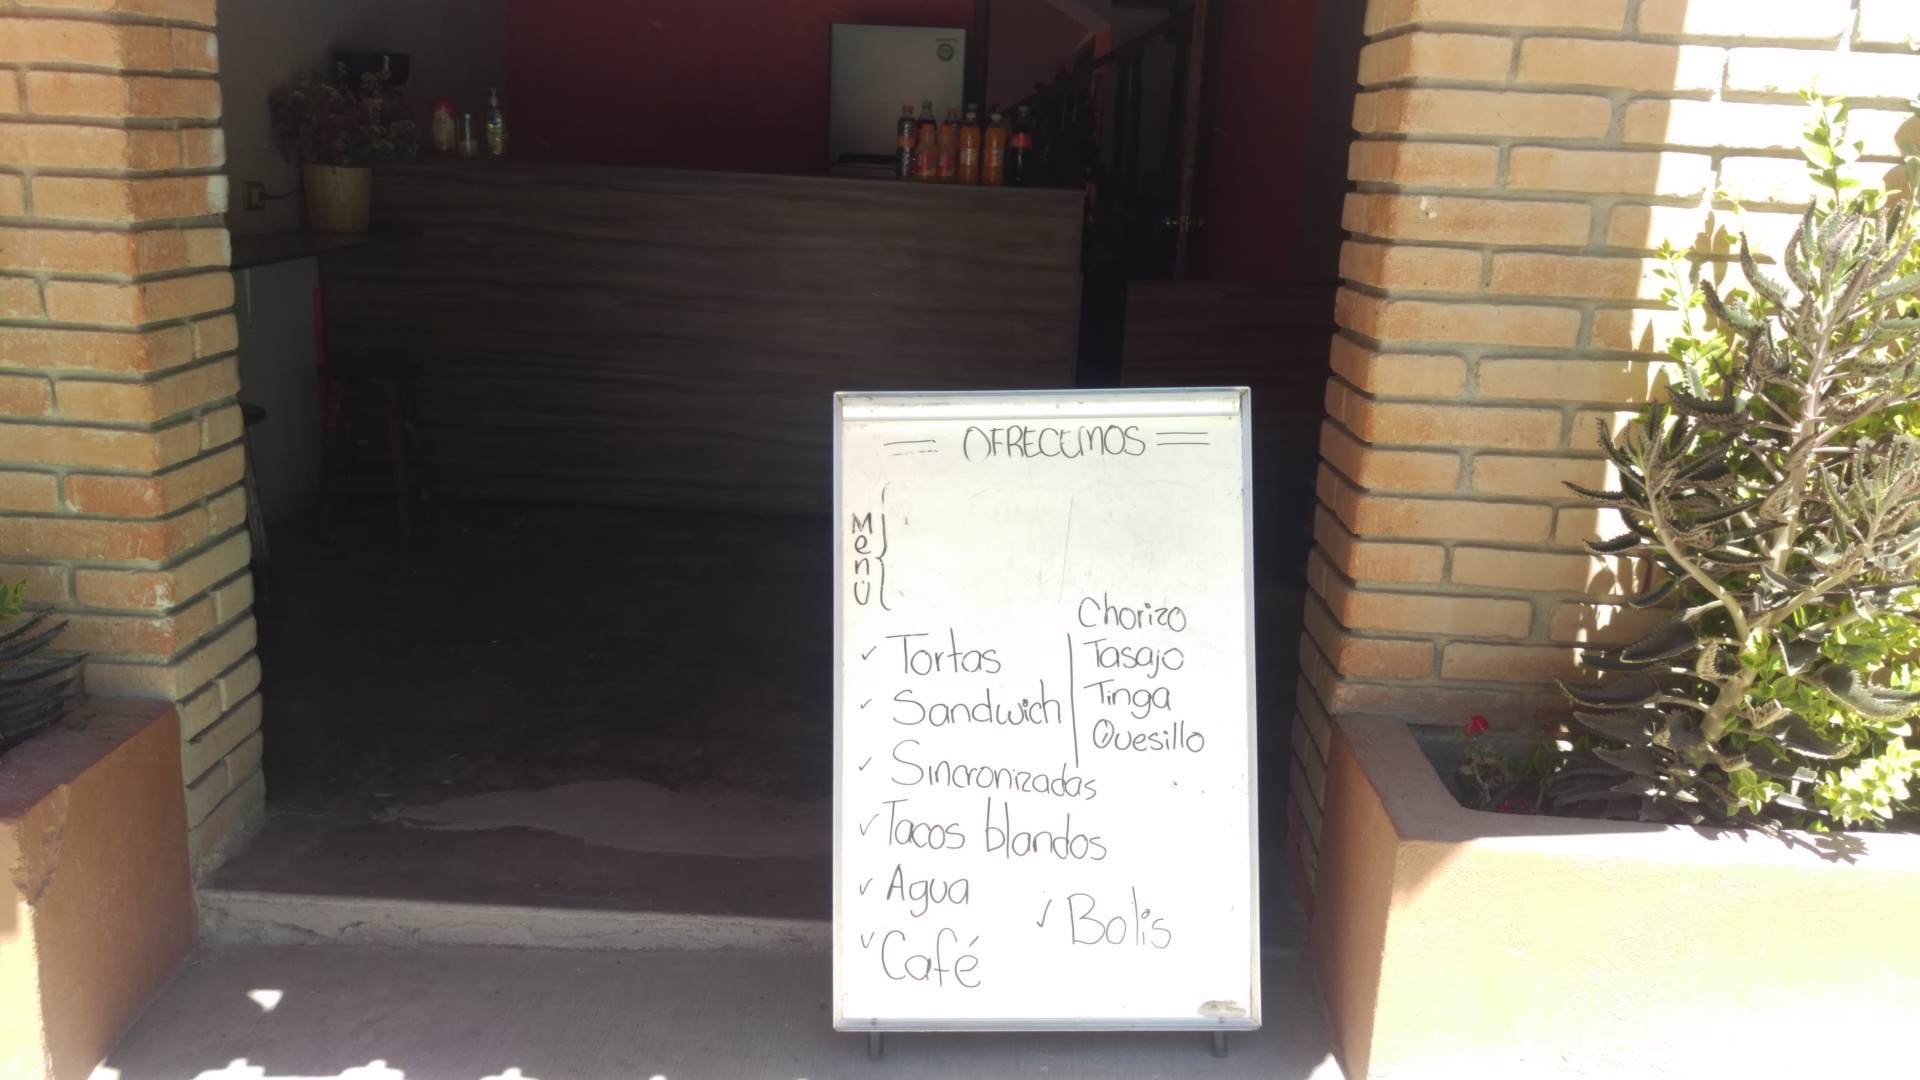 OFRECEMOS
Menú
Chorizo
Tasajo
Tinga
Quesillo
Tortas
Sandwich
Sincronizadas
Tacos blandos
Agua
Café
Bolis